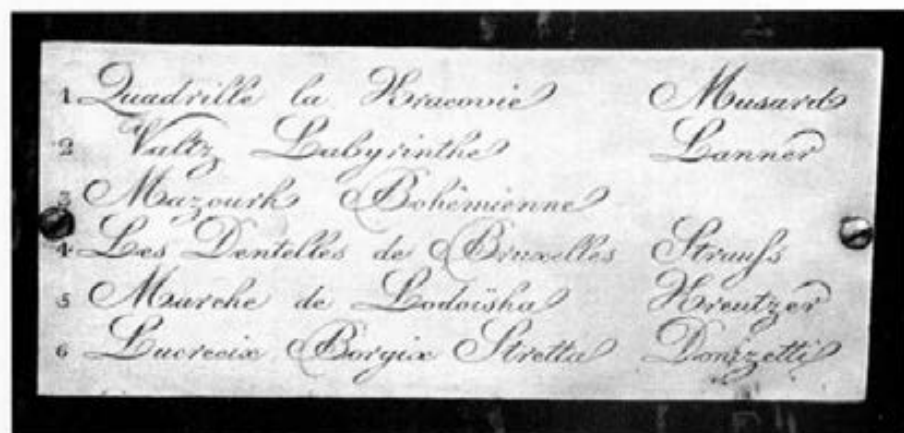 1 Quadrille la Kracovie Musard
2 Valtz Labyrinthe Lanner
3 Mazourk Bohêmienne
4 Les Dentelles de Bruxelles Straufs
5 Marche de Lodoïska Kreutzer
6 Lucrecix Borgix Stretta Donizetti